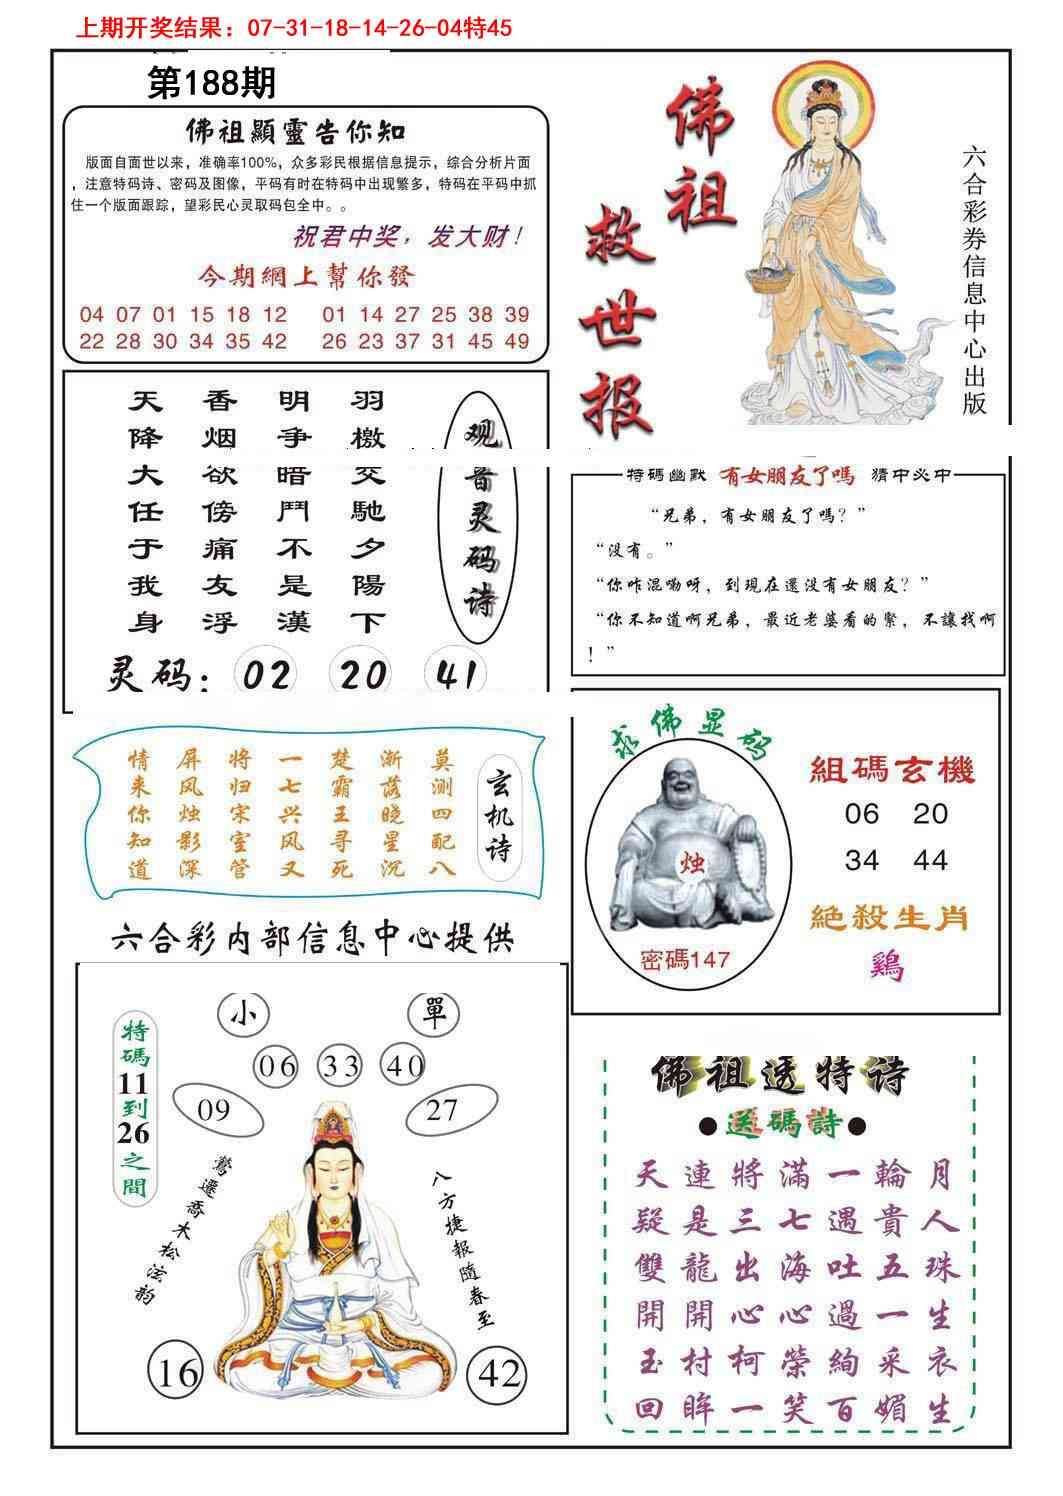 上期开奖结果：07-31-18-14-26-04特45
第188期
佛祖顯靈告你知
版面自面世以来，准确率100%，众多彩民根据信息提示，综合分析片面
，注意特码诗、密码及图像，平码有时在特码中出现繁多，特码在平码中抓
住一个版面跟踪，望彩民心灵取码包全中。。
祝君中奖，发大财！
今期網上幫你發
04 07 01 15 18 12 01 14 27 25 38 39
22 28 30 34 35 42 26 23 37 31 45 49
佛祖
救世报
六合彩券信息中心出版
观音灵码诗
羽檄交馳夕陽下
明争暗鬥不是漢
香烟欲傍痛友浮
天降大任于我身
灵码：02 20 41
特碼幽默 有女朋友了嗎 猜中必中
“兄弟，有女朋友了嗎？”
“没有。”
“你咋混嘞呀，到現在還没有女朋友？”
“你不知道啊兄弟，最近老婆看的緊，不讓找啊
！”
玄机诗
莫测四配八
渐落晓星沉
楚霸王寻死
一七兴风又
将归宋室管
屏风烛影深
情来你知道
求佛显码
烛
密碼147
組碼玄機
06 20
34 44
絕殺生肖
鷄
六合彩内部信息中心提供
特碼11到26之間
小 單
06 33 40
09 27
鶯遷喬木松泫韵
八方捷報隨春至
16 42
佛祖透特诗
●送碼詩●
天連將滿一輪月
疑是三七遇貴人
雙龍出海吐五珠
開開心心過一生
玉村柯榮絢采衣
回眸一笑百媚生